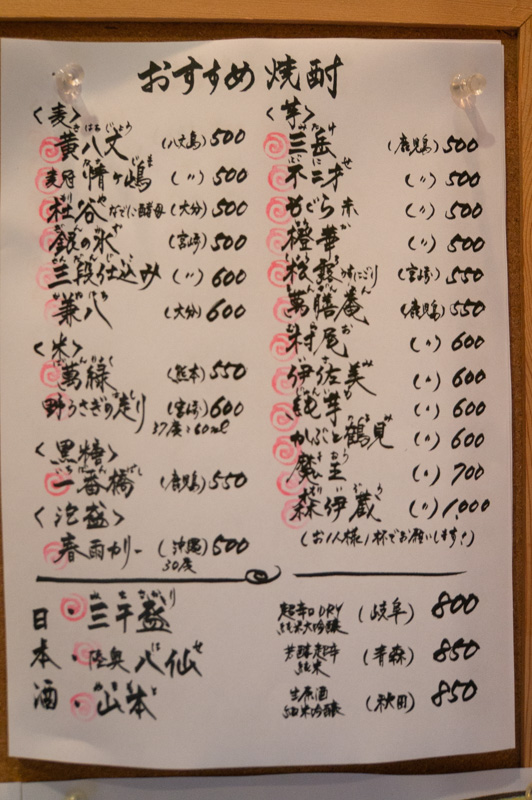 おすすめ焼酎
〈麦〉
黄八丈 (八丈島) 500
麦冠 情ヶ嶋 (〃) 500
杜谷 なでしこ酵母 (大分) 500
銀の水 (宮崎) 500
三段仕込み (〃) 600
兼八 (大分) 600
〈米〉
萬緑 (熊本) 550
野うさぎの走り (宮崎) 600
37度:60ml
〈黒糖〉
一番橋 (鹿児島) 550
〈泡盛〉
春雨カリー (沖縄) 500
30度
〈芋〉
三岳 (鹿児島) 500
不二才 (〃) 500
もぐら (〃) 500
橙華 (〃) 500
松露 うすにごり (宮崎) 550
萬膳庵 (鹿児島) 550
村尾 (〃) 600
伊佐美 (〃) 600
純芋 (〃) 600
かぶと鶴見 (〃) 600
魔王 (〃) 700
森伊蔵 (〃) 1,000
(お1人様1杯でお願いします!)
日本酒
・三千盛 超辛口DRY 純米大吟醸 (岐阜) 800
・陸奥八仙 芳醇超辛 純米 (青森) 850
・山本 生原酒 純米吟醸 (秋田) 850